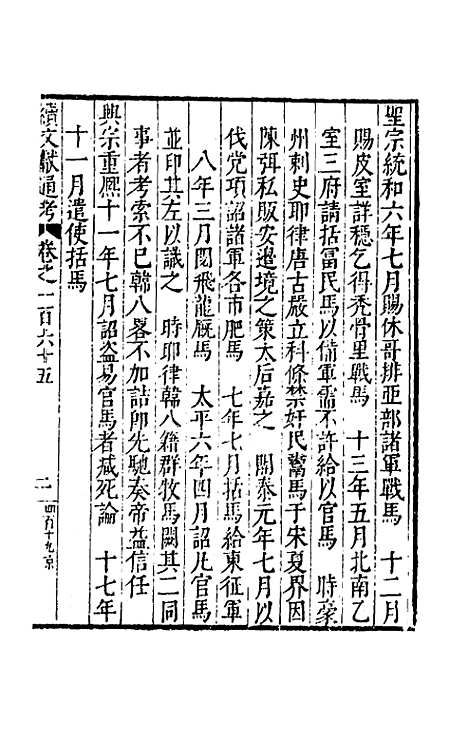 聖宗統和六年七月賜休哥排亞部諸軍戰馬　十二月
賜皮室詳穩乞得禿骨里戰馬　十三年五月北南乙
室三府請括富民馬以備軍需不許給以官馬　時豪
州刺史耶律唐古嚴立科條禁奸民鬻馬于宋夏界因
陳弭私販安邊境之策太后嘉之　開泰元年七月以
伐党項詔諸軍各市肥馬　七年七月括馬給東征軍
八年三月閱飛龍厩馬　太平六年四月詔凡官馬
並印其左以識之　時耶律韓八籍群牧馬闕其二同
事者考索不已韓八畧不加詰即先馳奏帝益信任
興宗重熈十一年七月詔盜易官馬者减死論　十七年
十一月遣使括馬
續文獻通考　卷之一百六十五　二　四百十九京